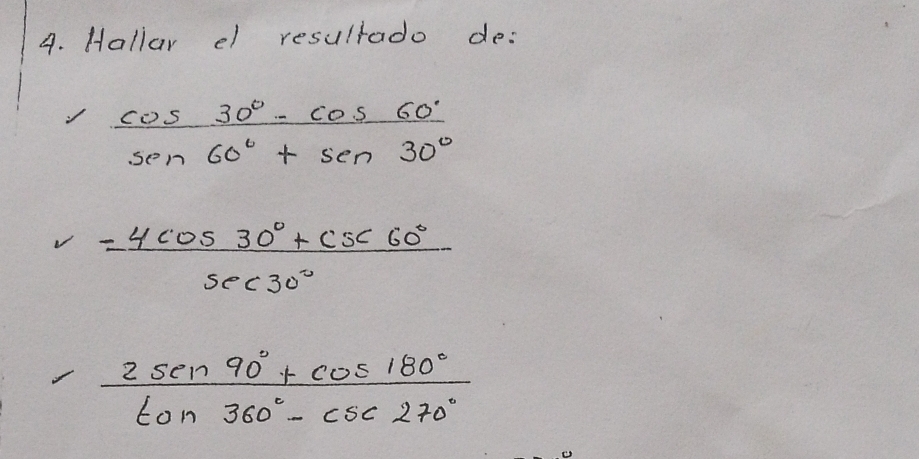 4. Hallar el resultado de:
✓ cos 30° - cos 60°
sen 60° + sen 30°
✓ -4 cos 30° + csc 60°
sec 30°
✓ 2 sen 90° + cos 180°
tan 360° - csc 270°